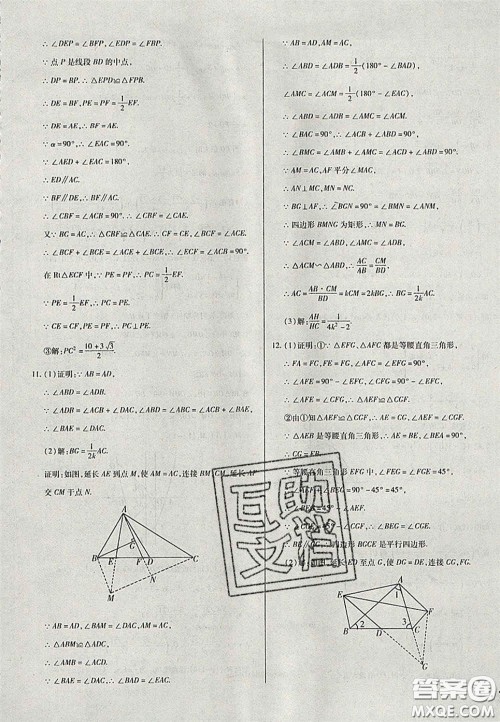 ∴ ∠DEP = ∠BFP, ∠EDP = ∠FBP.
∵ 点 P 是线段 BD 的中点,
∴ DP = BP. ∴ △EDP≌△FPB.
∴ DE = BF, PE = PF = 1/2 EF.
∵ DE = AE, ∴ BF = AE.
∵ α = 90°, ∴ ∠EAC = 90°.
∵ ∠AED + ∠EAC = 180°,
∴ ED∥AC.
∵ BF∥DE, ∴ BF∥AC.
∴ ∠CBF = ∠ACB = 90°. ∴ ∠CBF = ∠EAC.
又∵ BC = AC, ∴ △CBF≌△CAE. ∴ CF = CE.
∴ ∠BCF + ∠BCE = ∠ACE + ∠BCE, ∴ ∠ECF = ∠ACB = 90°.
在 Rt△ECF 中, ∵ PE = PF, ∴ PC = 1/2 EF.
∵ PE = 1/2 EF, ∴ PC = PE.
∵ CE = CF, PE = PF, ∴ PC⊥PE.
③解: PC² = (10 + 3√3)/2.
11. (1) 证明: ∵ AB = AD,
∴ ∠ABD = ∠ADB.
∵ ∠ADB = ∠ACB + ∠DAC, ∠ABD = ∠ABC = ∠ACB + ∠BAE,
∴ ∠BAE = ∠DAC.
(2) 解: BG = 1/2k AC.
证明: 如图, 延长 AE 到点 M, 使 AM = AC, 连接 BM, CM, 延长 AF
交 CM 于点 N.
A
B E F D C
G
N
M
∵ AB = AD, ∴ ∠BAM = ∠DAC, AM = AC,
∴ △ABM≌△ADC.
∴ ∠AMB = ∠ACD.
∵ ∠BAE = ∠DAC, ∴ ∠BAD = ∠MAC.
∵ AB = AD, AM = AC,
∴ ∠ABD = ∠ADB = 1/2 (180° - ∠BAD),
∠AMC = ∠ACM = 1/2 (180° - ∠MAC).
∴ ∠ABD = ∠ADB = ∠AMC = ∠ACM.
∵ ∠BAC = 90°, ∴ ∠ABC + ∠ACB = 90°.
∴ ∠BMC = ∠AMB + ∠AMC = ∠ACD + ∠ABC = 90°.
∵ AM = AC, AF 平分∠MAC,
∴ AN⊥MC. ∴ ∠MNG = 90°.
∵ BG⊥AF, ∴ ∠BGN = 90° = ∠BMN = ∠ANM.
∴ 四边形 BMNG 为矩形. ∴ BG = MN = 1/2 CM.
∵ ∠ABD = ∠ADB = ∠AMC = ∠ACM,
∴ △ACM∽△ADB. ∴ AC/AB = CM/BD.
∴ AC = AB·CM/BD = kCM = 2kBG, ∴ BG = 1/2k AC.
(3) 解: AH/HC = 1/(4k² - 2).
12. (1) 证明: ①∵ △EFG, △AFC 都是等腰直角三角形,
∴ FA = FC, FE = FG, ∠AFC = ∠EFG = 90°.
∴ ∠AFE = ∠CFG. ∴ △AEF≌△CGF.
②由①知△AEF≌△CGF, ∴ AE = CG, ∠AEF = ∠CGF.
∵ △ABE 是等腰直角三角形, ∴ AE = BE, ∠BEA = 90°.
∴ CG = EB.
∵ 等腰直角三角形 EFG 中, ∠FEG = ∠EGF = 45°,
∴ ∠AEF + ∠BEG = 90° - 45° = 45°,
∠CGF + ∠CGE = 45°,
∵ ∠AEF = ∠CGF, ∴ ∠BEG = ∠CGE.
∴ BE∥CG, ∴ 四边形 BGCE 是平行四边形.
(2) 证明: 如图, 延长 ED 至点 G, 使 DG = DE, 连接 CG, FG.
A
1
E
F
B
2
D
3
C
G
互助
文档
答案圈
MXQE.COM